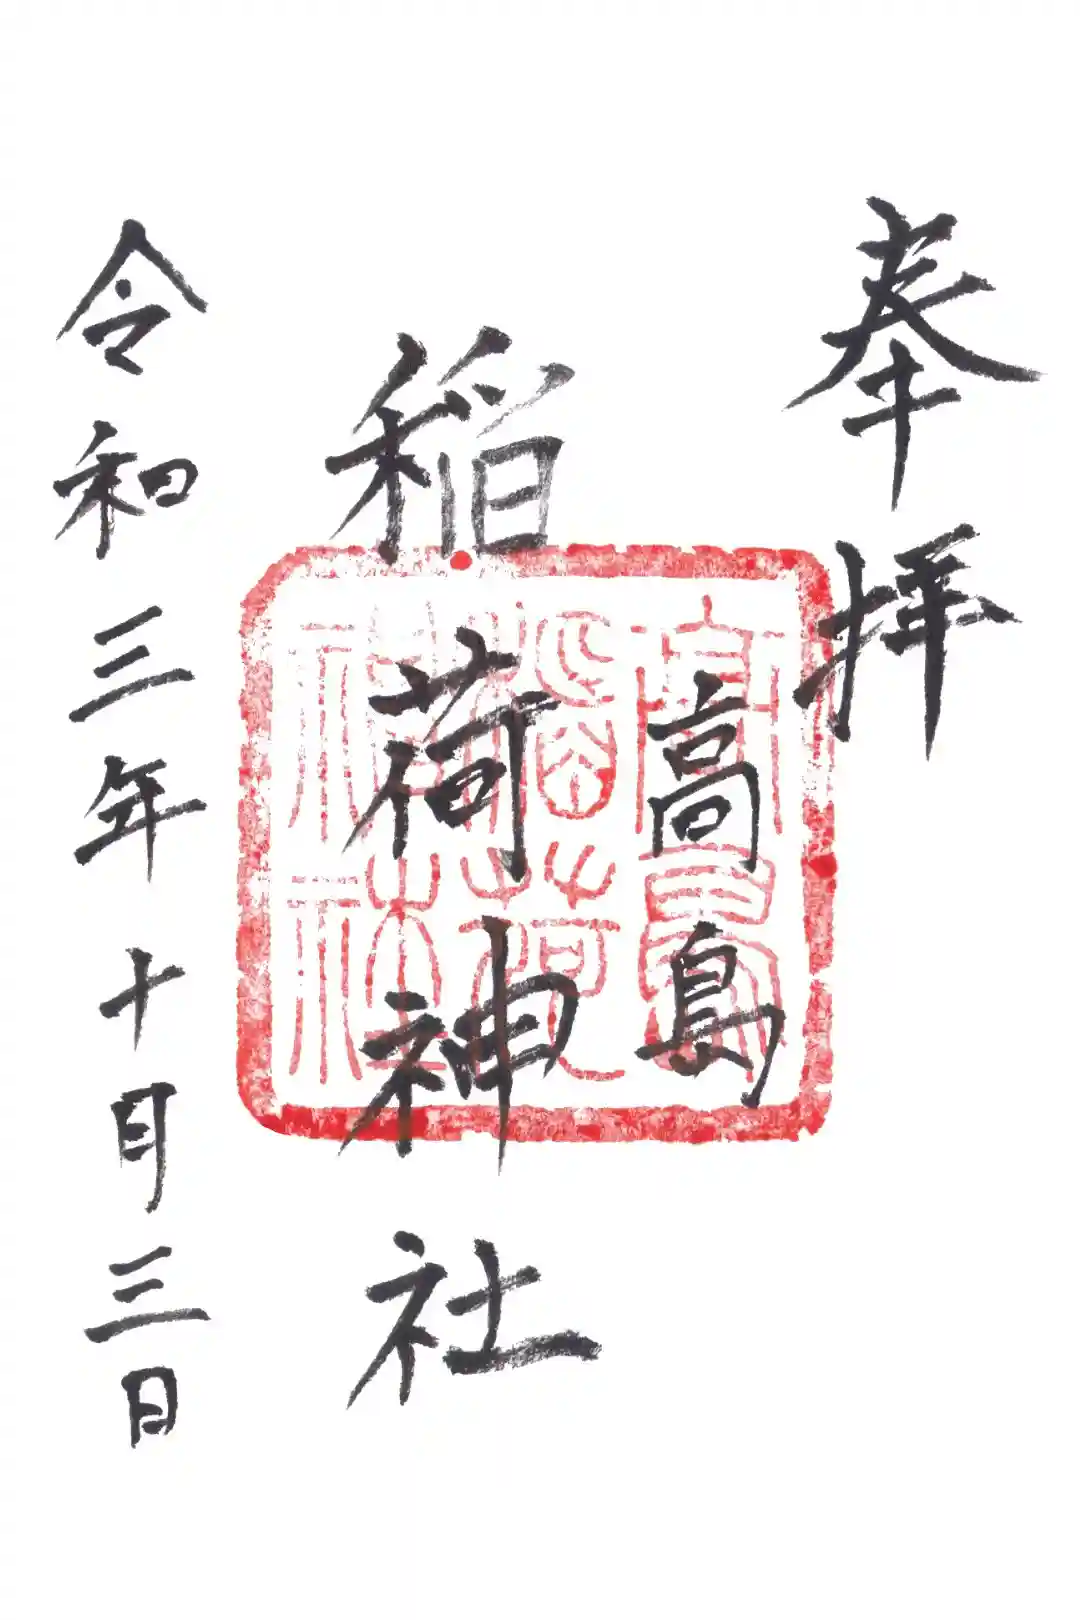 奉拝
高島
稲荷神社
令和三年十月三日
高島
稲荷
神社